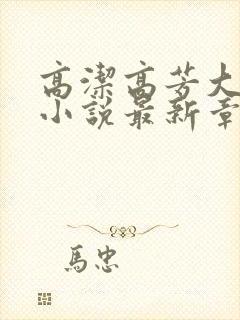 高潔高芳大
小說最新章
馬忠